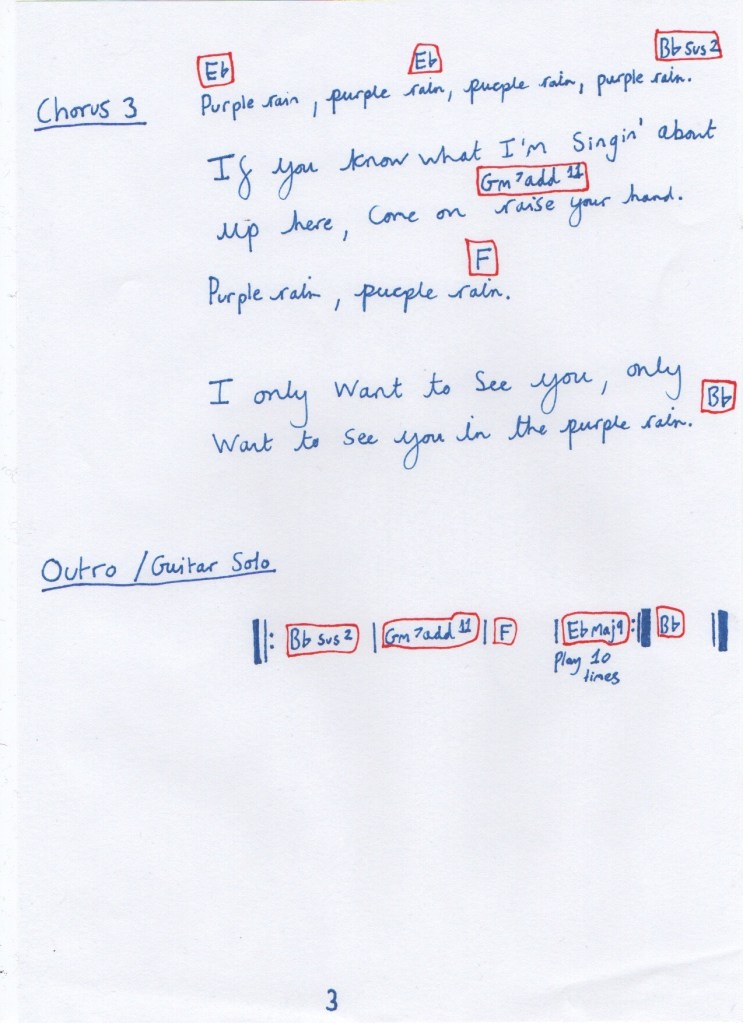 Eb Eb Bb sus2
Chorus 3 Purple rain, purple rain, purple rain, purple rain.
If you know what I'm Singin' about
Gm7add11
up here, Come on raise your hand.
F
Purple rain, purple rain.
I only Want to See you, only
Bb
Want to See you in the purple rain.
Outro / Guitar Solo
‖: Bb sus2 | Gm7add11 | F | Eb Maj9 :‖ Bb ‖
Play 10
times
3